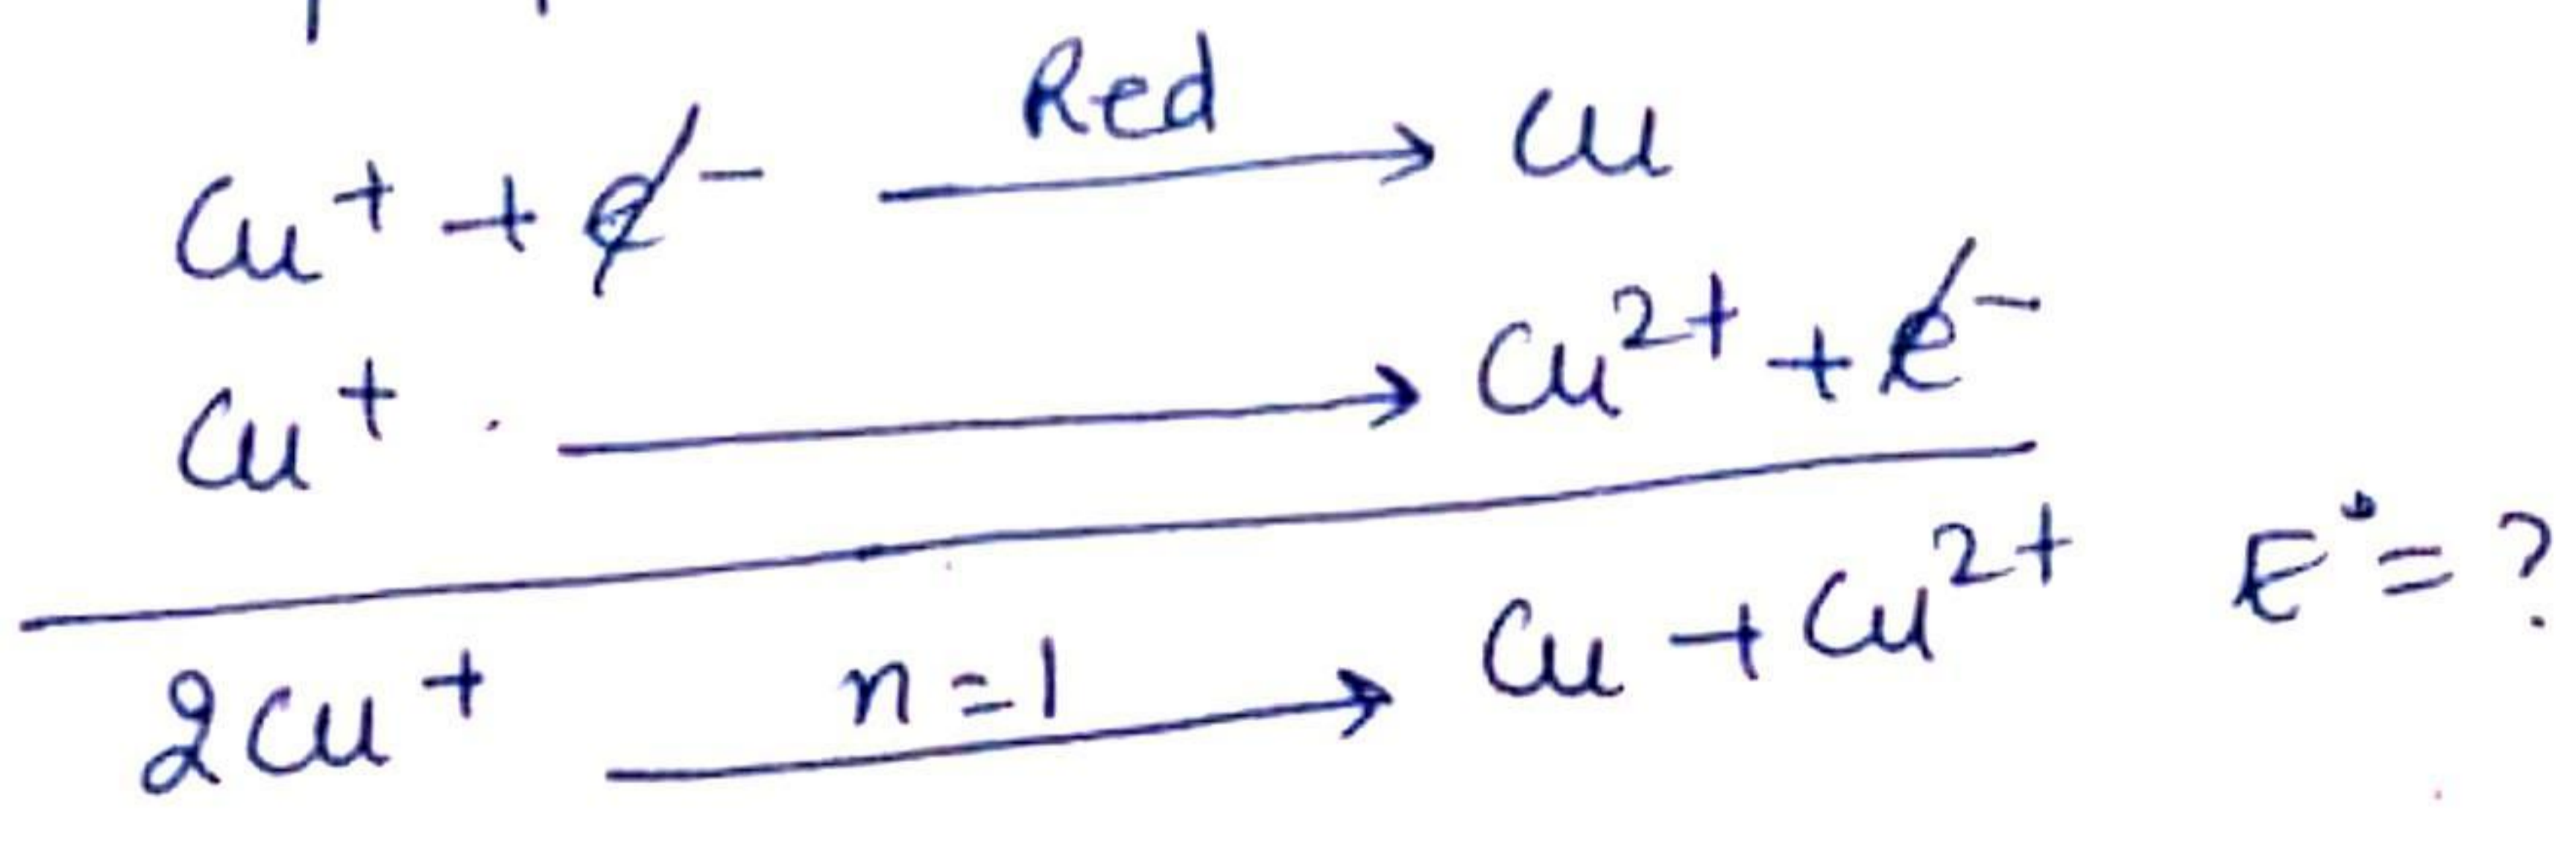 Cu⁺ + e⁻ —Red→ Cu
Cu⁺ ⟶ Cu²⁺ + e⁻
2Cu⁺ —n=1→ Cu + Cu²⁺ E° = ?